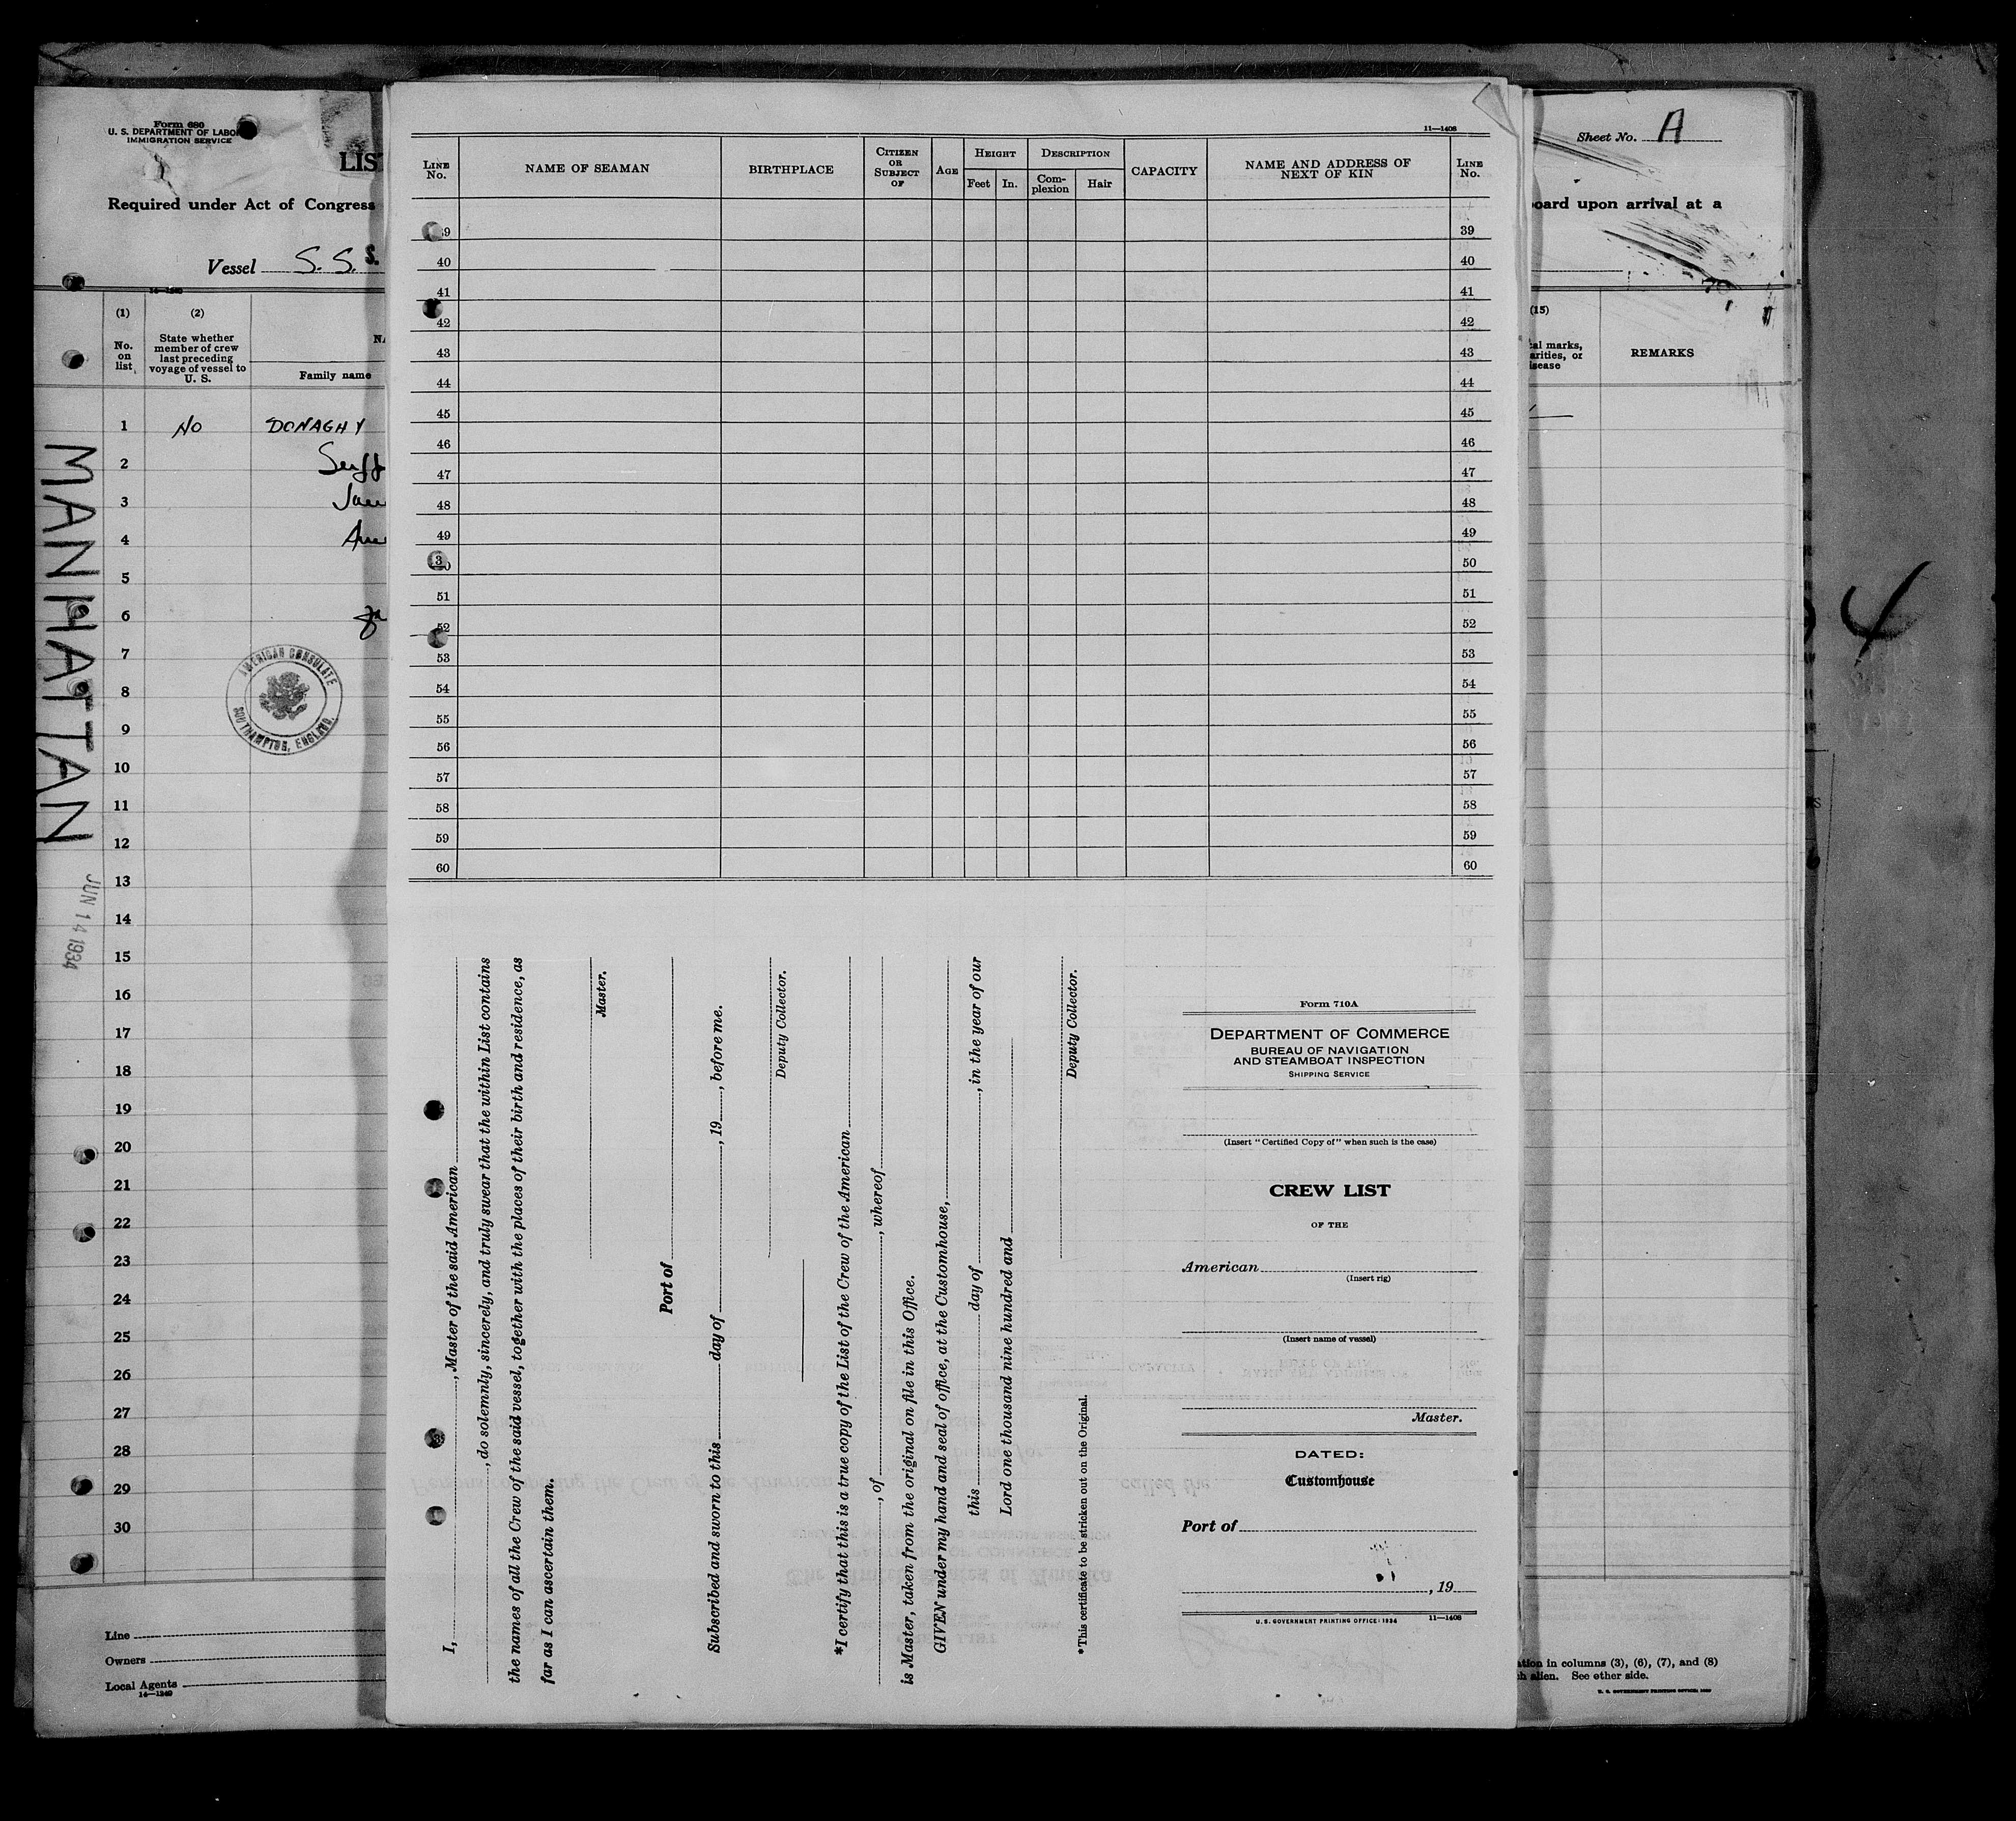 Form 680
U. S. DEPARTMENT OF LABOR
IMMIGRATION SERVICE
LIS
Required under Act of Congress
Vessel S. S. S.
14—1240
(1)
(2)
No. on list
State whether member of crew last preceding voyage of vessel to U. S.
NA
Family name
1 NO DONAGHY
2
3
4
5
6
7
8
9
10
11
12
13
14
15
16
17
18
19
20
21
22
23
24
25
26
27
28
29
30
AMERICAN CONSULATE
SOUTHAMPTON, ENGLAND.
MANHATTAN
JUN 14 1934
Line
Owners
Local Agents
14—1240
11—1408
LINE No.
NAME OF SEAMAN
BIRTHPLACE
CITIZEN OR SUBJECT OF
AGE
HEIGHT
Feet
In.
DESCRIPTION
Complexion
Hair
CAPACITY
NAME AND ADDRESS OF NEXT OF KIN
LINE No.
39 39
40 40
41 41
42 42
43 43
44 44
45 45
46 46
47 47
48 48
49 49
50 50
51 51
52 52
53 53
54 54
55 55
56 56
57 57
58 58
59 59
60 60
I, , Master of the said American
, do solemnly, sincerely, and truly swear that the within List contains
the names of all the Crew of the said vessel, together with the places of their birth and residence, as
far as I can ascertain them.
Master.
Port of
Subscribed and sworn to this day of , 19 , before me.
Deputy Collector.
*I certify that this is a true copy of the List of the Crew of the American
, of , whereof
is Master, taken from the original on file in this Office.
GIVEN under my hand and seal of office, at the Customhouse,
this day of , in the year of our
Lord one thousand nine hundred and
Deputy Collector.
*This certificate to be stricken out on the Original.
Form 710A
DEPARTMENT OF COMMERCE
BUREAU OF NAVIGATION
AND STEAMBOAT INSPECTION
SHIPPING SERVICE
(Insert "Certified Copy of" when such is the case)
CREW LIST
OF THE
American
(Insert rig)
(Insert name of vessel)
Master.
DATED:
Customhouse
Port of
, 19
U. S. GOVERNMENT PRINTING OFFICE: 1934 11—1408
Sheet No. A
oard upon arrival at a
(15)
al marks,
arities, or
isease
REMARKS
4
ation in columns (3), (6), (7), and (8)
ch alien. See other side.
U. S. GOVERNMENT PRINTING OFFICE